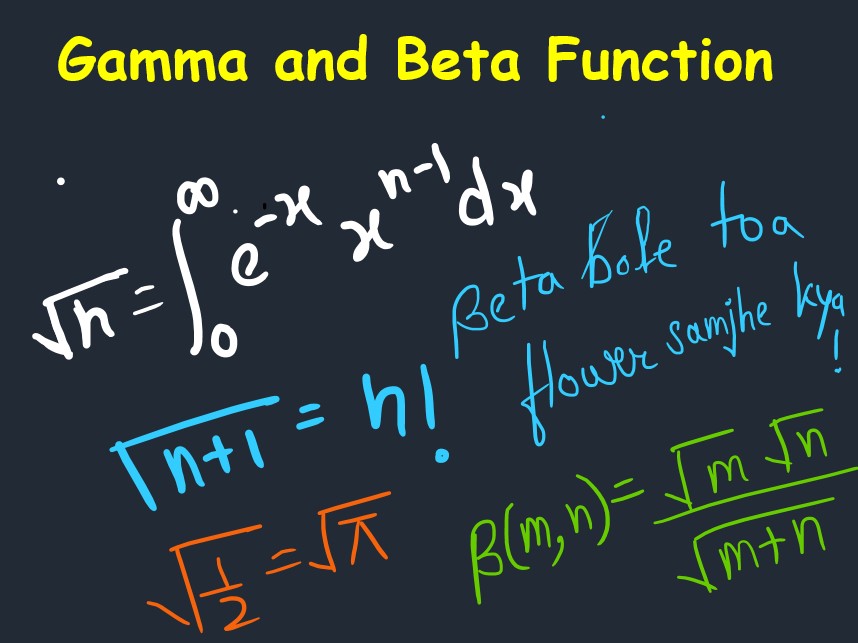 Gamma and Beta Function
√n = ∫₀^∞ e^-x x^n-1 dx
Beta bole toa
flower samjhe kya!
√n+1 = n!
√1/2 = √π
β(m,n) = √m √n / √m+n